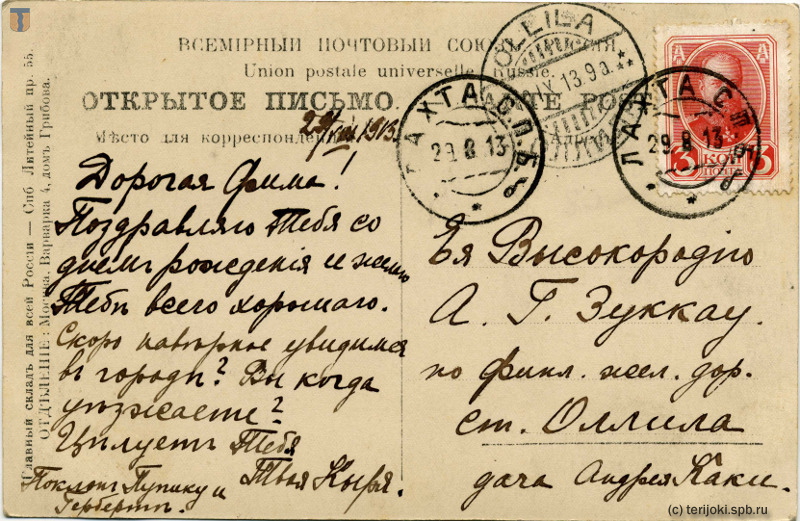 ВСЕМІРНЫЙ ПОЧТОВЫЙ СОЮЗЪ. РОССІЯ.
Union postale universelle. Russie.
ОТКРЫТОЕ ПИСЬМО.
Мѣсто для корреспонденціи
29/VIII 1913.
Дорогая Фима!
Поздравляю Тебя со
днемъ рожденія и желаю
Тебѣ всего хорошаго.
Скоро навѣрное увидимся
въ городѣ? Вы когда
уѣзжаете?
Цѣлуетъ Тебя
Твоя Кыря.
Поклонъ Пупику и
Гербертъ.
Ея Высокородію
А. Г. Зуккау.
по финл. жел. дор.
ст. Оллила
дача Андрея Каки.
Главный складъ для всей Россіи — Спб Литейный пр. 55.
ОТДѢЛЕНІЕ: Москва. Варварка 4, домъ Грибова.
OLLILA
IX.13.9 a.
ЛАХТА С.П.Б.
29 8 13
ЛАХТА С.П.
29.8.13
3 КОП 3
(c) terijoki.spb.ru